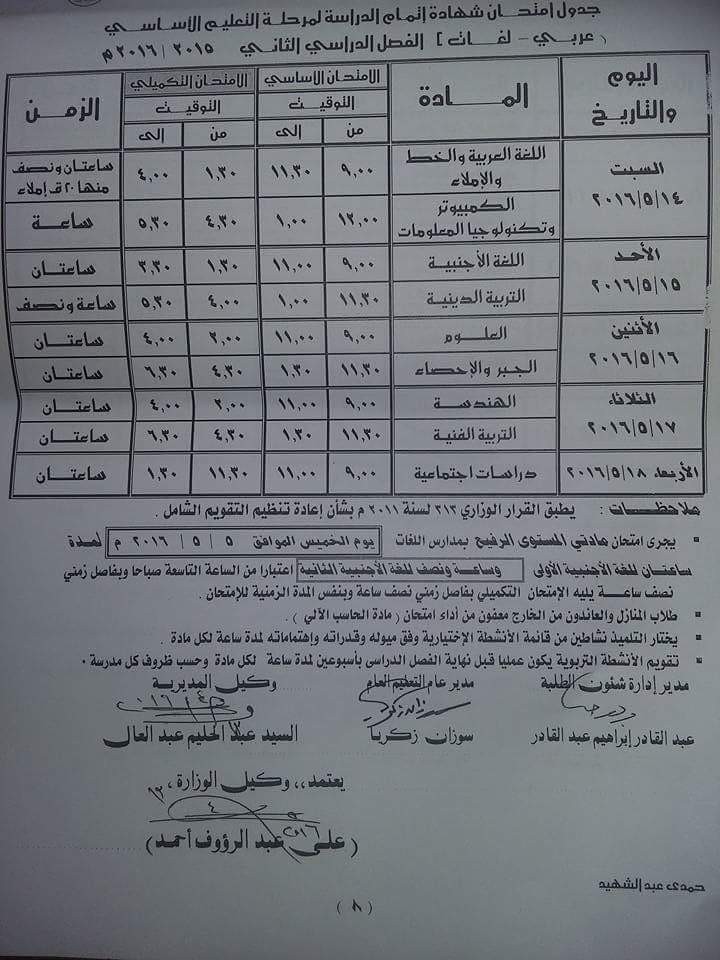 جدول امتحان شهادة إتمام الدراسة لمرحلة التعليم الأساسي
( عربي - لغات ) الفصل الدراسي الثاني ٢٠١٥ / ٢٠١٦ م
اليوم والتاريخ المــادة الامتحان الأساسي الامتحان التكميلي الزمن
التوقيت التوقيت
من إلى من إلى
السبت ٢٠١٦/٥/١٤ اللغة العربية والخط والإملاء ٩,٠٠ ١١,٣٠ ١,٣٠ ٤,٠٠ ساعتان ونصف منها ٢٠ ق إملاء
الكمبيوتر وتكنولوجيا المعلومات ١٢,٠٠ ١,٠٠ ٤,٣٠ ٥,٣٠ ساعة
الأحد ٢٠١٦/٥/١٥ اللغة الأجنبية ٩,٠٠ ١١,٠٠ ١,٣٠ ٣,٣٠ ساعتان
التربية الدينية ١١,٣٠ ١,٠٠ ٤,٠٠ ٥,٣٠ ساعة ونصف
الأثنين ٢٠١٦/٥/١٦ العلوم ٩,٠٠ ١١,٠٠ ٢,٠٠ ٤,٠٠ ساعتان
الجبر والإحصاء ١١,٣٠ ١,٣٠ ٤,٣٠ ٦,٣٠ ساعتان
الثلاثاء ٢٠١٦/٥/١٧ الهندسة ٩,٠٠ ١١,٠٠ ٢,٠٠ ٤,٠٠ ساعتان
التربية الفنية ١١,٣٠ ١,٣٠ ٤,٣٠ ٦,٣٠ ساعتان
الأربعاء ٢٠١٦/٥/١٨ دراسات اجتماعية ٩,٠٠ ١١,٠٠ ١١,٣٠ ١,٣٠ ساعتان
ملاحظات : يطبق القرار الوزاري ٣١٣ لسنة ٢٠١١ م بشأن إعادة تنظيم التقويم الشامل .
▪ يجرى امتحان مادتي المستوى الرفيع بمدارس اللغات يوم الخميس الموافق ٥ / ٥ / ٢٠١٦ م لمدة
ساعتان للغة الأجنبية الأولى وساعة ونصف للغة الأجنبية الثانية اعتبارا من الساعة التاسعة صباحا وبفاصل زمني
نصف ساعة يليه الإمتحان التكميلي بفاصل زمني نصف ساعة وبنفس المدة الزمنية للإمتحان .
▪ طلاب المنازل والعائدون من الخارج معفون من أداء امتحان ( مادة الحاسب الآلي ) .
▪ يختار التلميذ نشاطين من قائمة الأنشطة الإختيارية وفق ميوله وقدراته واهتماماته لمدة ساعة لكل مادة .
▪ تقويم الأنشطة التربوية يكون عمليا قبل نهاية الفصل الدراسى بأسبوعين لمدة ساعة لكل مادة وحسب ظروف كل مدرسة .
مدير إدارة شئون الطلبة مدير عام التعليم العام وكيل المديرية
عبد القادر إبراهيم عبد القادر سوزان زكريا السيد عبد الحليم عبد العال
يعتمد،، وكيل الوزارة ،
( على عبد الرؤوف أحمد )
حمدى عبد الشهيد
( ٨ )